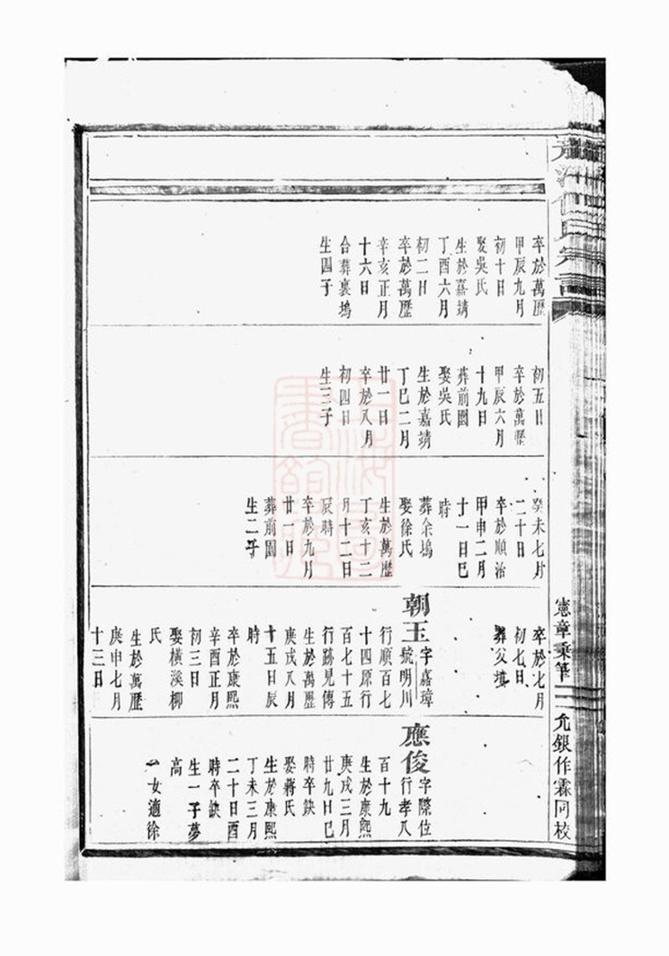 卒於萬歷
甲辰九月
初十日
娶吳氏
生於嘉靖
丁酉六月
初二日
卒於萬歷
辛亥正月
十六日
合葬裏塢
生四子
初五日
卒於萬歷
甲辰六月
十九日
葬前園
娶吳氏
生於嘉靖
丁巳二月
廿一日
卒於八月
初四日
生三子
癸未七月
二十日
卒於順治
甲申二月
十一日巳
時
葬余塢
娶徐氏
生於萬歷
丁亥十二
月十二日
辰時
卒於九月
廿一日
葬前園
生二子
卒於七月
初七日
葬父墳
朝玉字嘉璋
號明川
行順百七
十四原行
百七十五
行蹟見傳
生於萬歷
庚戌八月
十五日辰
時
卒於康熙
辛酉正月
初三日
娶橫溪柳
氏
生於萬歷
庚申七月
十三日
應俊字際位
行孝八
百十九
生於康熙
庚戌三月
廿九日巳
時卒缺
娶蔣氏
生於康熙
丁未三月
二十日酉
時卒缺
生一子夢
高
一女適徐
憲章秉筆
允銀作霖同校